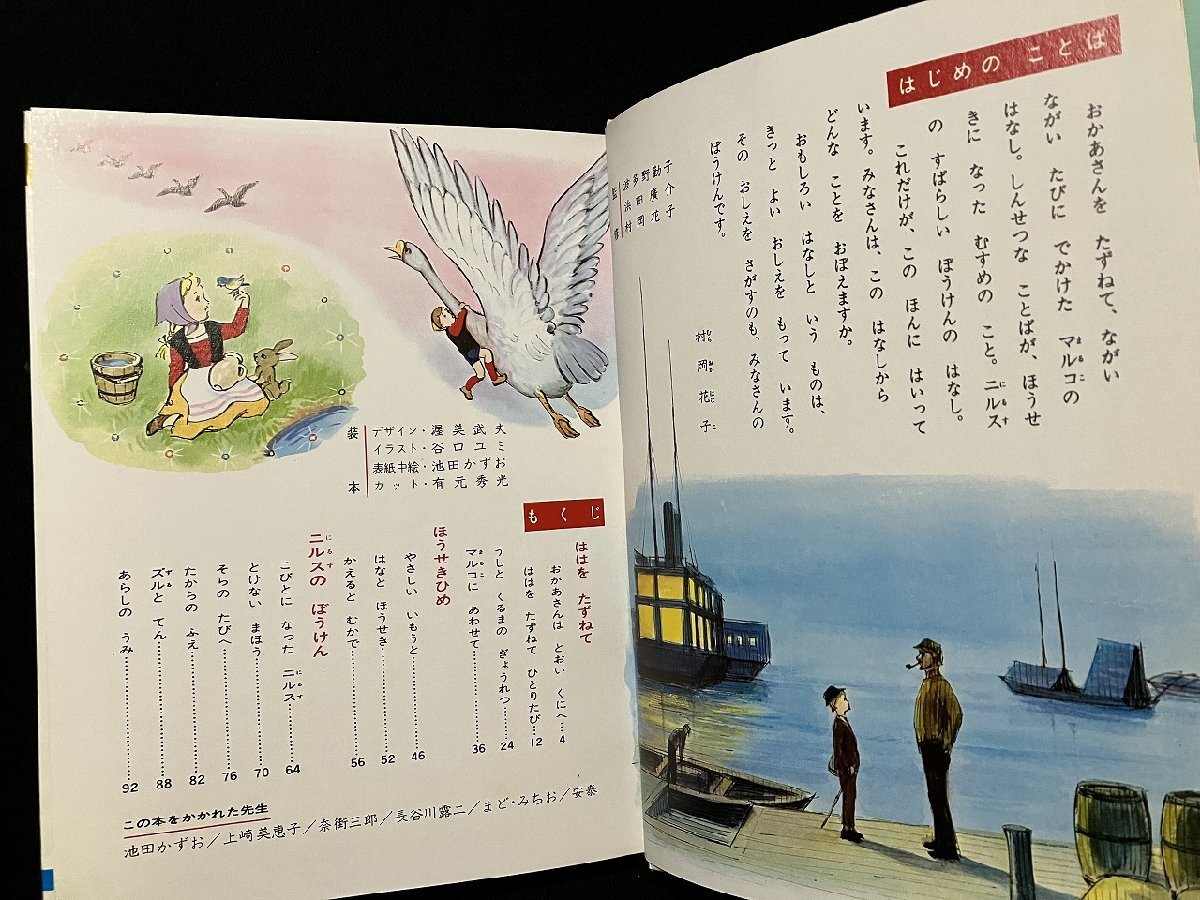 はじめの ことば
おかあさんを たずねて、ながい
ながい たびに でかけた マルコの
はなし。しんせつな ことばが、ほうせ
きに なった むすめの こと。ニルス
の すばらしい ぼうけんの はなし。
これだけが、この ほんに はいって
います。みなさんは、この はなしから
どんな ことを おぼえますか。
おもしろい はなしと いう ものは、
きっと よい おしえを もって います。
その おしえを さがすのも、みなさんの
ぼうけんです。
村岡花子
監修
波多野勤子
浜田廣介
村岡花子
装本
デザイン・渥美武夫
イラスト・谷口ユミ
表紙中絵・池田かずお
カット・有元秀光
もくじ
ははを たずねて
おかあさんは とおい くにへ……4
ははを たずねて ひとりたび……12
うしと くるまの ぎょうれつ……24
マルコに めわせて……36
ほうせきひめ
やさしい いもうと……46
はなと ほうせき……52
かえると むかで……56
ニルスの ぼうけん
こびとに なった ニルス……64
とけない まほう……70
そらの たびへ……76
たからの ふえ……82
ズルと てん……88
あらしの うみ……92
この本をかかれた先生
池田かずお/上崎美恵子/奈街三郎/長谷川露二/まど・みちお/安泰